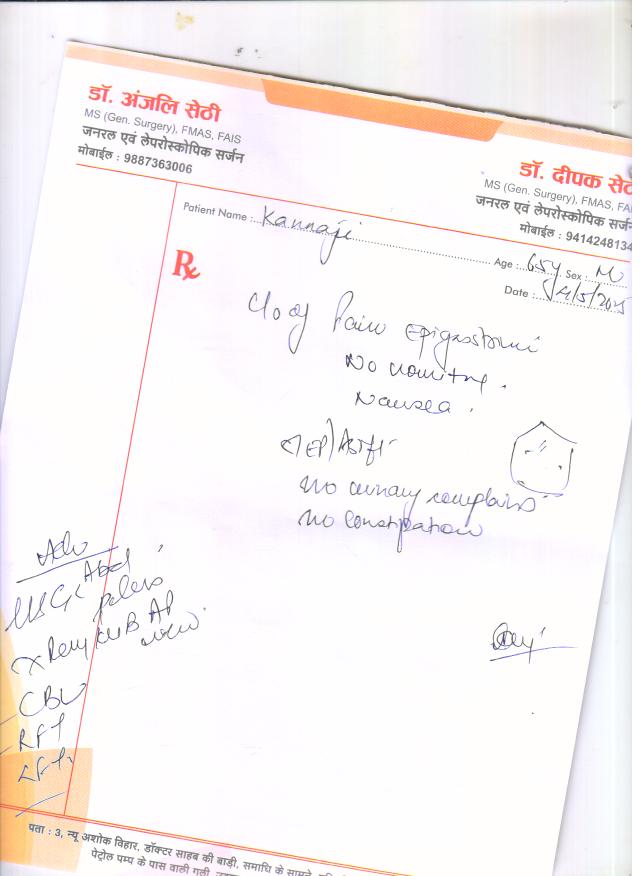 डॉ. अंजलि सेठी
MS (Gen. Surgery), FMAS, FAIS
जनरल एवं लेपरोस्कोपिक सर्जन
मोबाईल : 9887363006
डॉ. दीपक से
MS (Gen. Surgery), FMAS, FA
जनरल एवं लेपरोस्कोपिक सर्ज
मोबाईल : 941424813
Patient Name : Kannaji
Age : 65y Sex : M
Date :
Rx
C/o of Pain Epigastrium
No vomiting.
Nausea.
No urinary complains
No Constipation
Adv
USG Abd
pelvis
X Ray KUB AP
view
CBC
RFT
LFT
पता : 3, न्यू अशोक विहार, डॉक्टर साहब की बाड़ी, समाधि के सामने,
पेट्रोल पम्प के पास वाली गली,